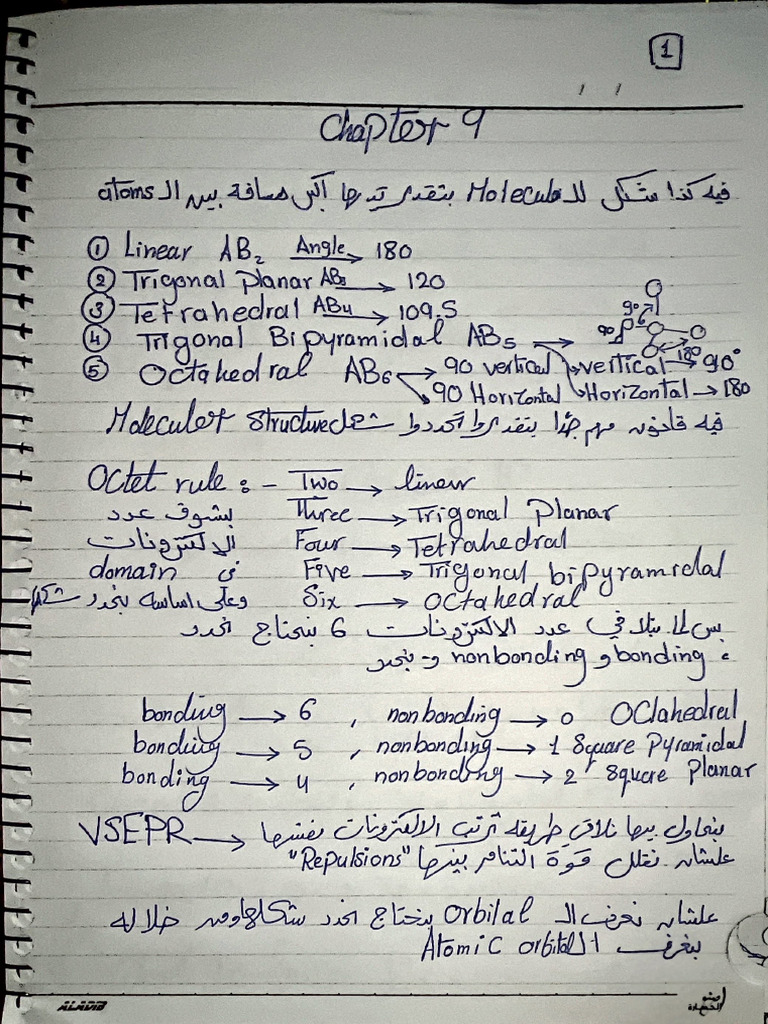 1
Chapter 9
فيه كذا شكل للـ Molecular بتقدر تديها اكبر مسافة بين الـ atoms
① Linear AB2 Angle → 180
② Trigonal planar AB3 → 120
③ Tetrahedral AB4 → 109.5
④ Trigonal Bipyramidal AB5 → 90 90 180
vertical → 90°
Horizontal → 180
⑤ Octahedral AB6 → 90 vertical
90 Horizontal
فيه قانون مهم جدًا بتقدروا تحددوا شكل Molecular structure
Octet rule :- Two → linear
بشوف عدد Three → Trigonal Planar
الالكترونات Four → Tetrahedral
domain في Five → Trigonal bipyramidal
وعلى اساسه بنحدد شكلها Six → octahedral
بس لما نلاقي عدد الالكترونات 6 بنحتاج نحدد
bonding و nonbonding
bonding → 6 , nonbonding → 0 Octahedral
bonding → 5 , nonbonding → 1 Square Pyramidal
bonding → 4 , nonbonding → 2 Square Planar
VSEPR → بنحاول بيها نلاقي طريقه ترتب الالكترونات نفسها
علشان نقلل قوة التنافر بينها "Repulsions"
علشان نعرف الـ Orbital بنحتاج نحدد شكلها ومن خلاله
بنعرف الـ Atomic orbital
ALADIB